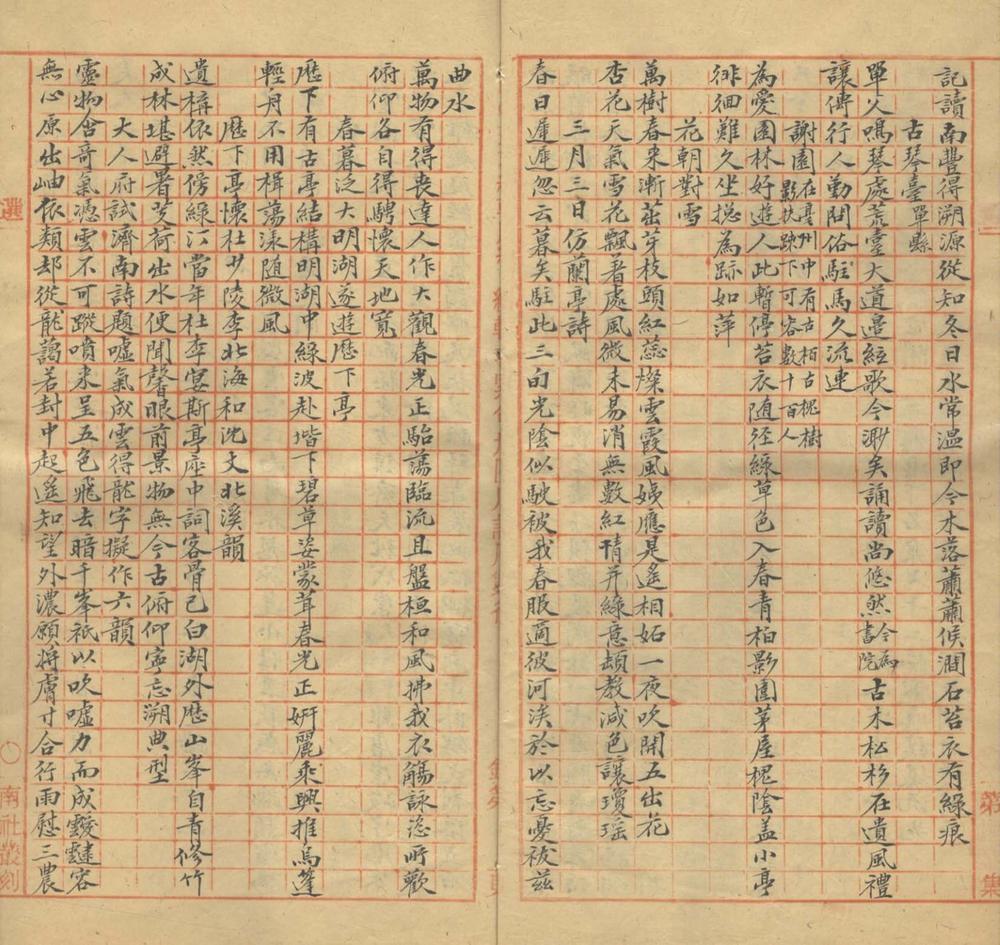 記讀南豐得溯源從知冬日水常温即今木落蕭蕭候澗石苔衣有綠痕
古琴臺單縣
單父鳴琴處荒臺大道邊絃歌今渺矣誦讀尚悠然今為書院古木松杉在遺風禮
讓傳行人勤問俗駐馬久流連
謝園在亳州中有古柏古槐樹影扶疎下可容數十百人
為愛園林好遊人此暫停苔衣随径綠草色入春青柏影圍茅屋槐陰蓋小亭
徘徊難久坐摠為跡如萍
花朝對雪
萬樹春来漸茁芽枝頭紅蕊燦雲霞風姨應是遙相妬一夜吹開五出花
杏花天氣雪花飄着處風微未易消無數紅情并綠意頓教減色讓瓊瑶
三月三日仿蘭亭詩
春日遲遲忽云暮矣駐此三旬光陰似駛被我春服適彼河涘於以忘憂祓兹
曲水
萬物有得喪達人作大觀春光正駘蕩臨流且盤桓和風拂我衣觴詠恣所歡
俯仰各自得騁懷天地寬
春暮泛大明湖遂遊歷下亭
歷下有古亭結構明湖中綠波赴堦下碧草姿蒙茸春光正妍麗乘興推烏篷
輕舟不用楫蕩漾随微風
歷下亭懷杜少陵李北海和沈丈北溪韻
遺構依然傍綠汀當年杜李宴斯亭座中詞客骨已白湖外歷山峯自青修竹
成林堪避暑芰荷出水便聞馨眼前景物無今古俯仰寧忘溯典型
大人府試濟南詩題噓氣成雲得龍字擬作六韻
靈物含奇氣憑雲不可蹤噴来呈五色飛去暗千峯祇以吹噓力而成靉靆容
無心原出岫依類却從龍藹若封中起遙知望外濃願將膚寸合行雨慰三農
選
南社叢刻
第
集